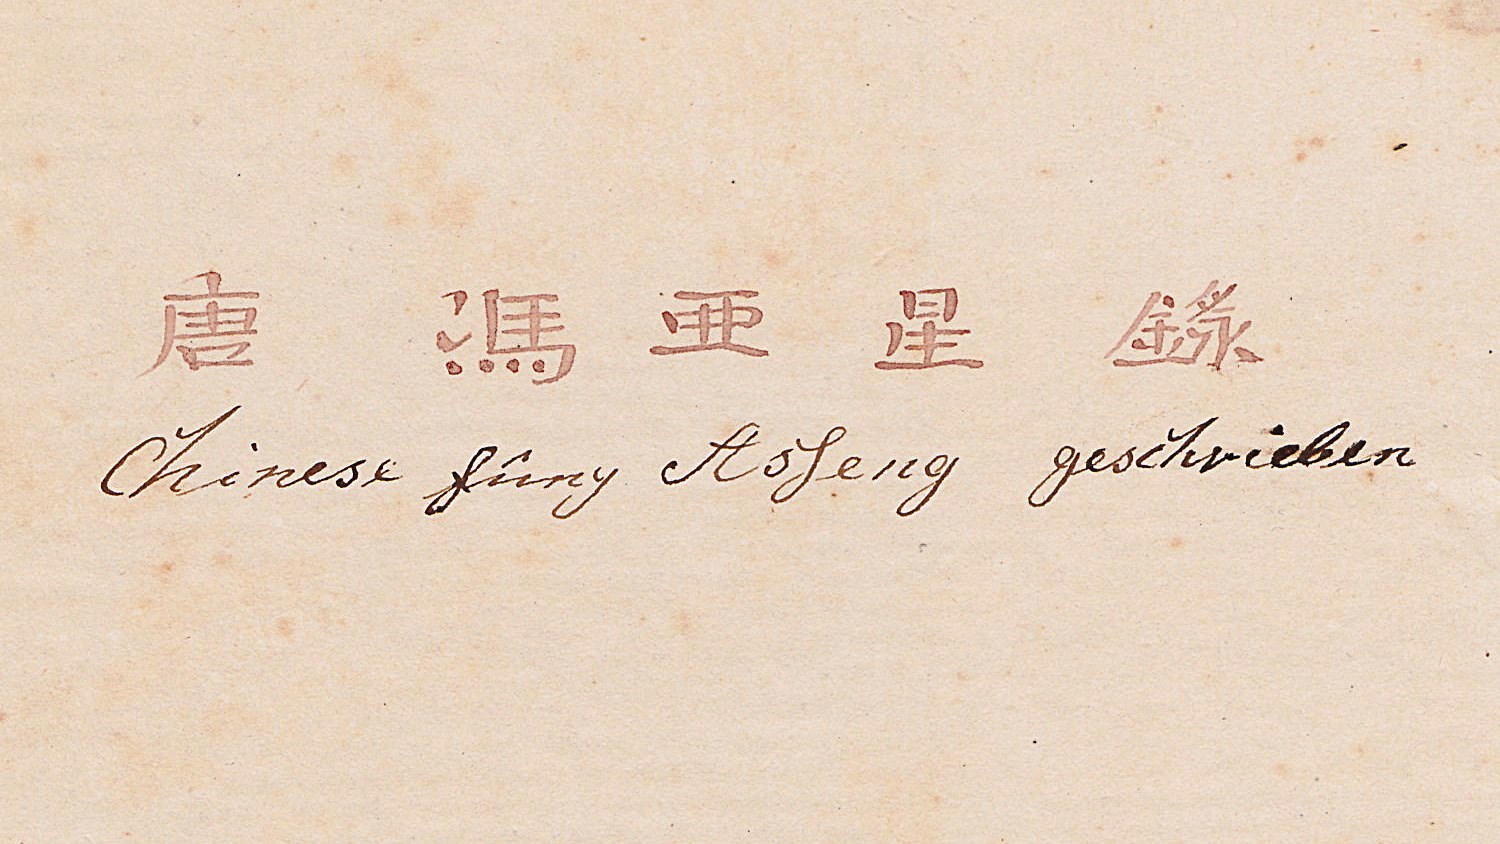 唐 馮 亜 星 錄
Chinese fûng Asseng geschrieben